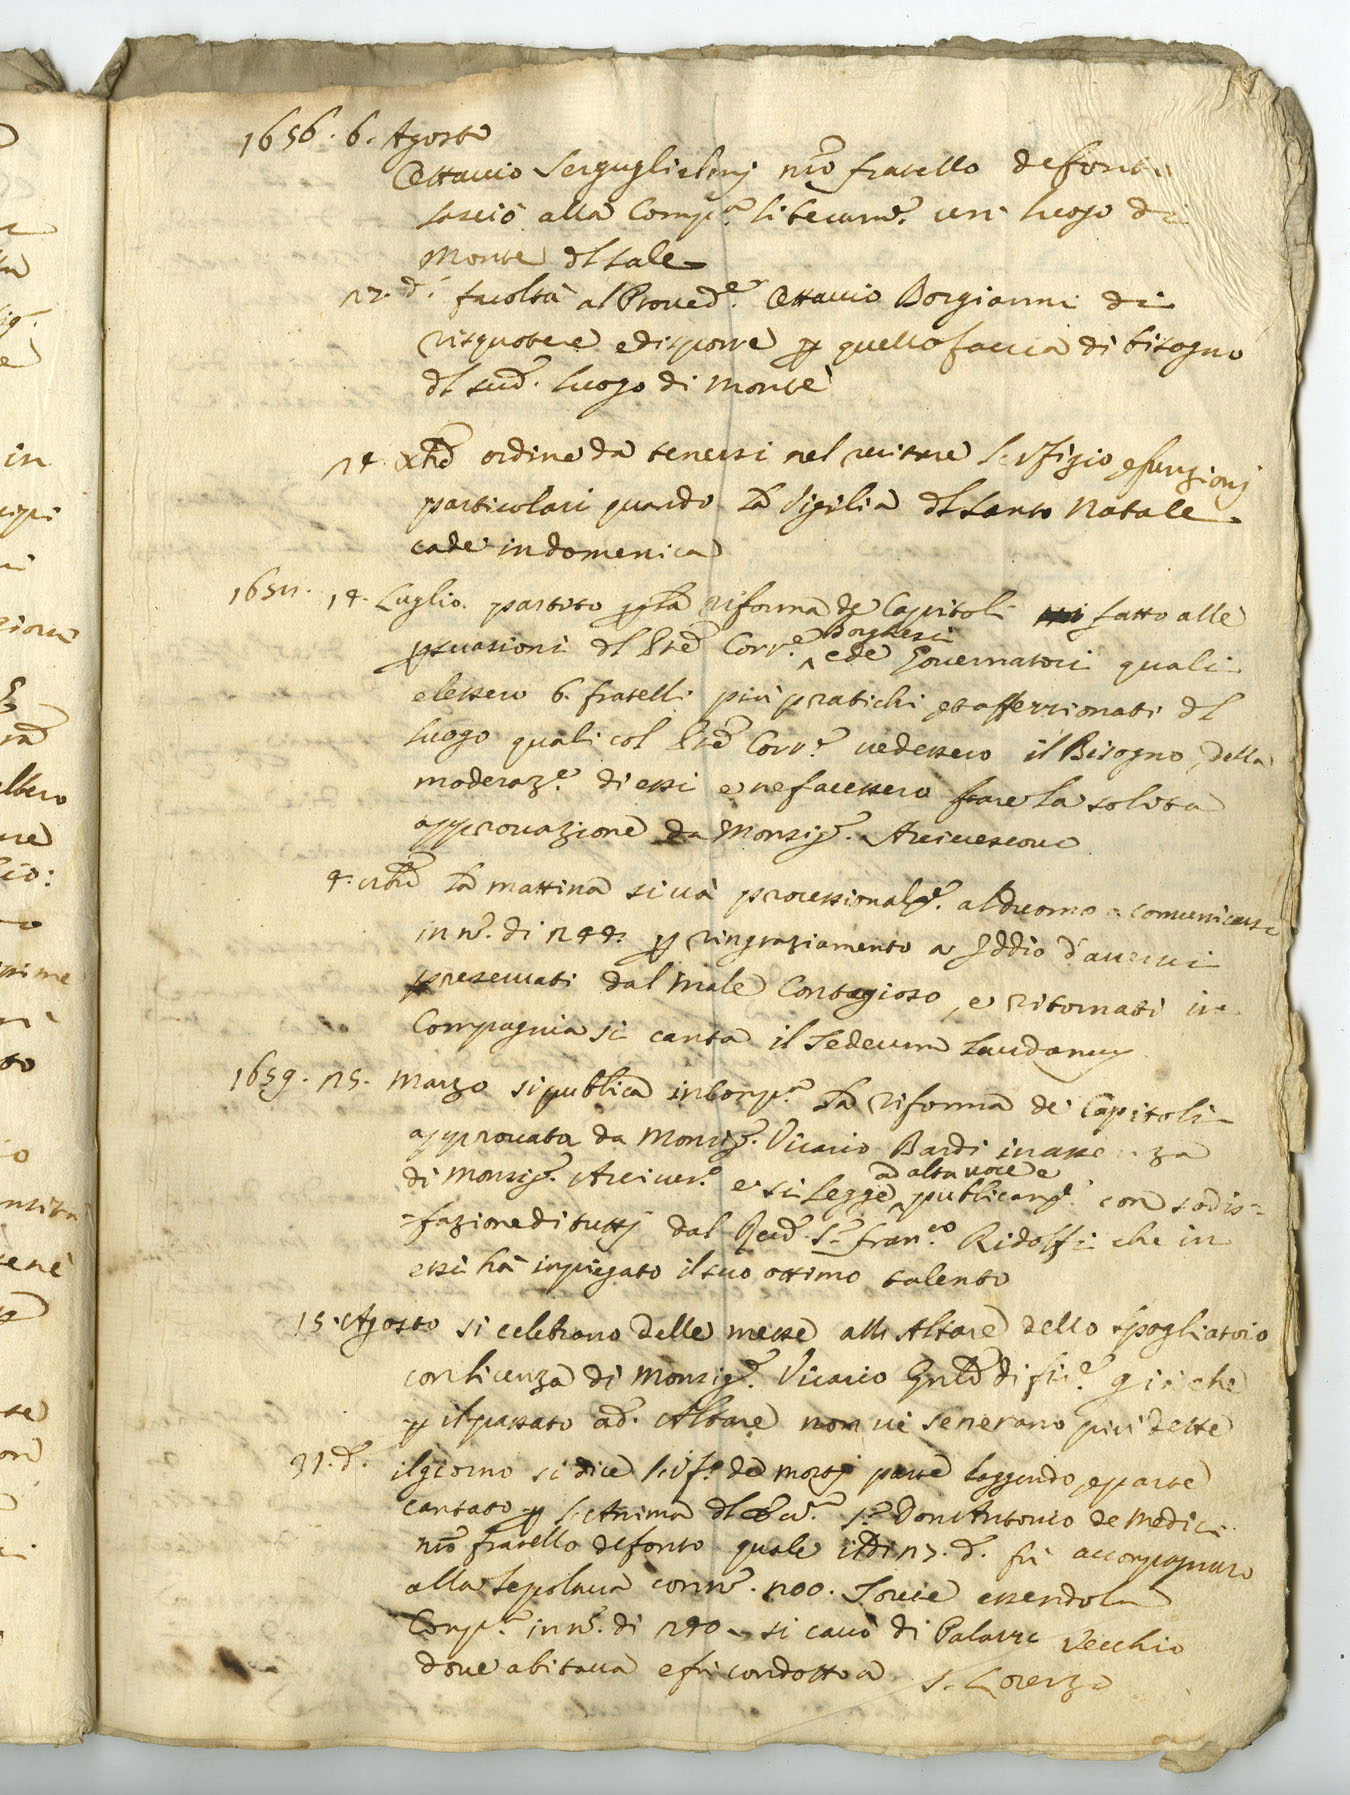 1656. 6. Agosto
Ottavio Serguglielmj nr̃o fratello defonto
lasciò alla Comp.a liberam.e un luogo di
Monte dl sale
27. d.o facoltà al Proved.re Ottavio Borgianni di
risquotere e disporre p quello faccia di bisogno
dl sud.o luogo di Monte
24. Xbr̃e ordine da tenersi nel recitare l'ofizio e funzionj
particolari quando la Vigilia dl santo Natale
cade in domenica
14. Luglio. partito p la riforma de Capitoli fatto alle
psuasioni dl Pr̃e Corr.e Borghesi e de Governatori quali
elessero 6. fratelli più pratichi et affezzionati dl
luogo quali col Pr̃e Corr.e vedessero il Bisogno, della
moderaz.e di essi e ne facessero fare la solita
approvazione da Monsig.re Arcivescovo
la mattina si và processionalm.te al duomo a comunicarsi
in n.o di 244. p ringraziamento a Iddio d'averci
preservati dal male Contagioso, e ritornati in
Compagnia si canta il Tedeum Laudamus
1659. 25. Marzo si publica in Comp.a la riforma de Capitoli
approvata da Monsig.re Vicario Bardi in assenza
di Monsig.re Arcives.o e si legge ad alta voce e publicam.te con sodis=
=fazione di tuttj dal Reved. S.r Fran.co Ridolfi che in
essi hà inpiegato il suo ottimo talento
15. Agosto si celebrano delle messe all' Altare dello spogliatoio
con licenza di Monsig.re Vicario di fir.e già che
p il passato ad.o Altare non vi s'enerano più dette
31. d.o il giorno si dice l'of.o de mortj parte leggendo, e parte
cantato p l'Anima dl S.r Don Antonio de Medici
nr̃o fratello defonto quale il dì 27. d.o fù accompagnato
alla sepoltura con n.o 200. Torcie essendo la
Comp.a in n.o di 240 si cavò di Palazzo Vecchio
dove abitava e fù condotto a S. Lorenzo